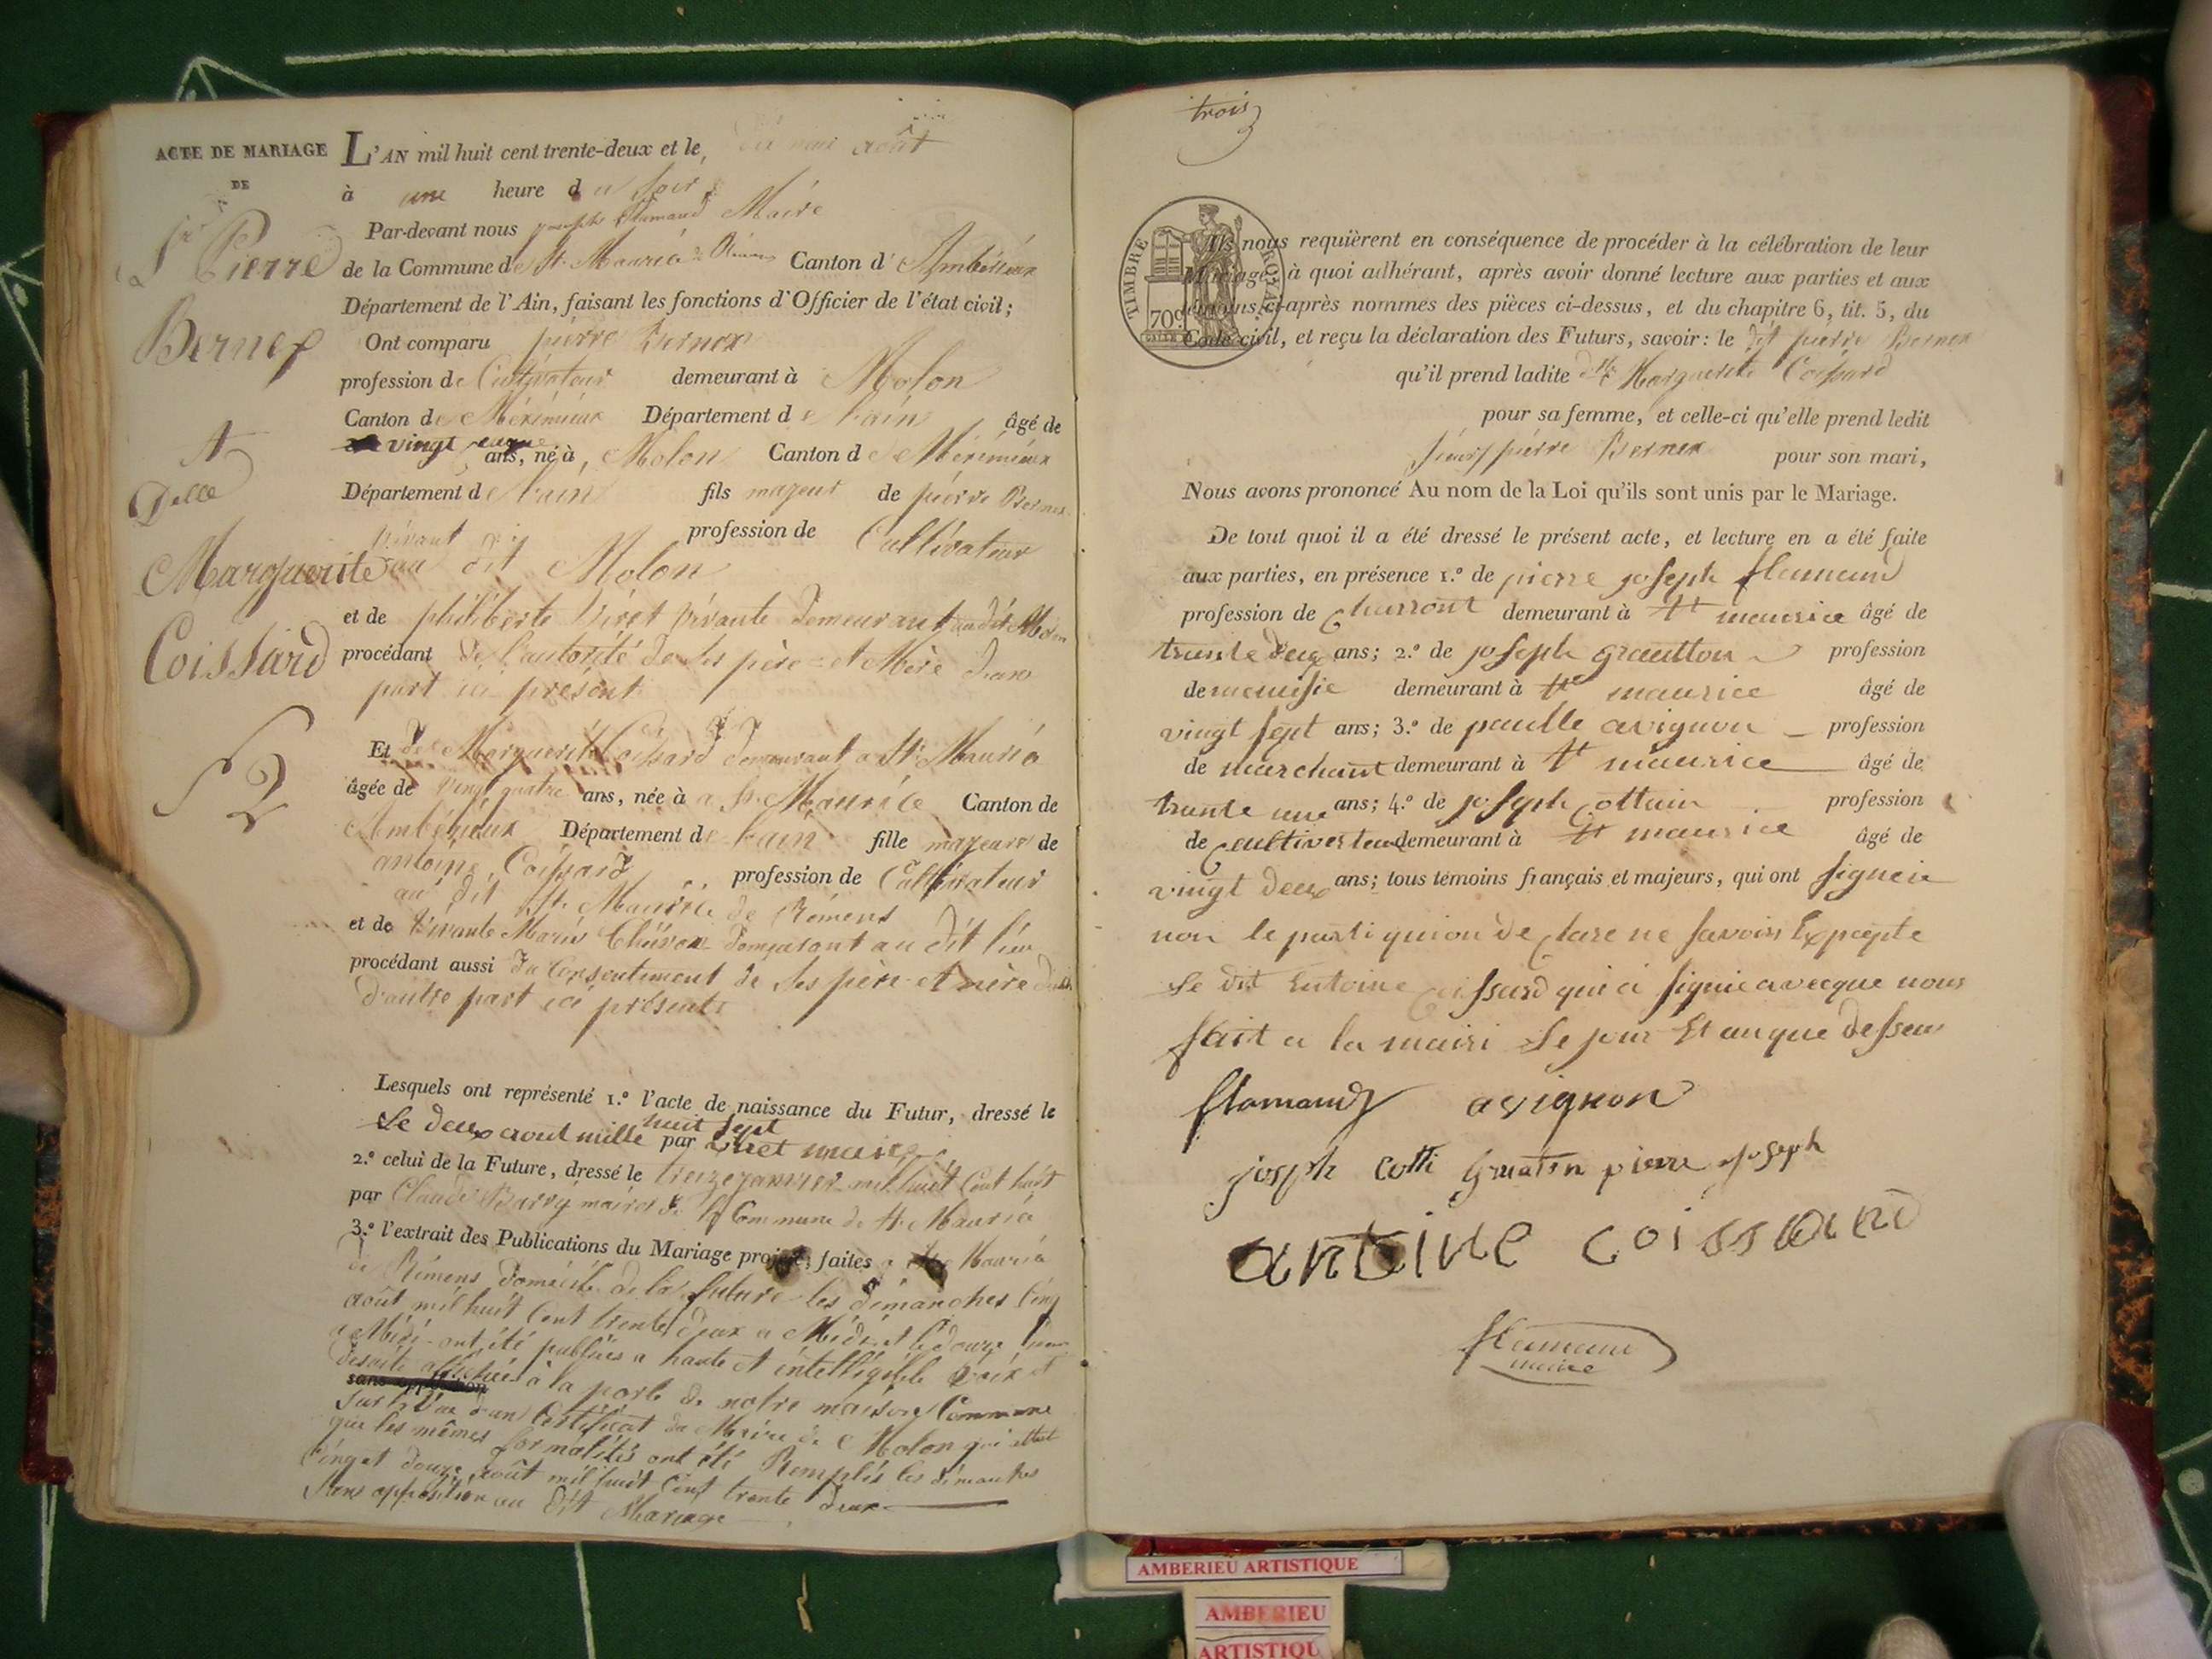 ACTE DE MARIAGE
DE
Sr Pierre
Bernex
A
Delle
Marguerite
Coissard
L'AN mil huit cent trente-deux et le, août
à une heure du soir
Par-devant nous joseph flamand Maire
de la Commune de St Maurice de Rémens Canton d'Ambérieux
Département de l'Ain, faisant les fonctions d'Officier de l'état civil;
Ont comparu pierre Bernex
profession de Cultivateur demeurant à Molon
Canton de Méximieux Département de l'ain âgé de
vingt cinq ans, né à, Molon Canton de Méximieux
Département de l'ain fils majeur de pierre Bernex
vivant profession de Cultivateur
au dit Molon
et de philiberte Vivante demeurant au dit Molon
procédant de l'autorité de ses père et Mère d'une
part ici présent
Et de Marguerite Coissard demeurant a St Maurice
âgée de vingt quatre ans, née à a St Maurice Canton de
Ambérieux Département de l'ain fille majeure de
antoine Coissard profession de Cultivateur
au dit St Maurice de Rémens
et de Vivante Marie demeurant au dit lieu
procédant aussi du Consentement de ses père et mère
d'autre part ici présents
Lesquels ont représenté 1.º l'acte de naissance du Futur, dressé le
Le deux aout mille huit sept par maire
2.º celui de la Future, dressé le treize janvier mil huit Cent huit
par Claude Barry maire de la Commune de St Maurice
3.º l'extrait des Publications du Mariage projeté, faites a St Maurice
de Rémens domicile de la future les dimanches cinq
août mil huit Cent trente deux a Midi et le douze
a Midi ont été publiées a haute et intelligible voix et
desuite affichées à la porte de notre maison Commune
sans opposition
sur le vue d'un Certificat du Maire de Molon qui
que les mêmes formalités ont été Remplis les dimanches
Cinq et douze août mil huit Cent trente deux
Sans opposition au dit Mariage
trois
TIMBRE ROYAL
70c
Ils nous requièrent en conséquence de procéder à la célébration de leur
Mariage, à quoi adhérant, après avoir donné lecture aux parties et aux
témoins ci-après nommés des pièces ci-dessus, et du chapitre 6, tit. 5, du
Code civil, et reçu la déclaration des Futurs, savoir: le dit pierre Bernex
qu'il prend ladite dlle Marguerite Coissard
pour sa femme, et celle-ci qu'elle prend ledit
sieur pierre Bernex pour son mari,
Nous avons prononcé Au nom de la Loi qu'ils sont unis par le Mariage.
De tout quoi il a été dressé le présent acte, et lecture en a été faite
aux parties, en présence 1.º de pierre joseph flamand
profession de charront demeurant à St maurice âgé de
trante deux ans; 2.º de joseph grautton profession
de menusie demeurant à St maurice âgé de
vingt sept ans; 3.º de paulle avignon profession
de marchant demeurant à St maurice âgé de
trante une ans; 4.º de joseph Cottain profession
de Cultivesteur demeurant à St maurice âgé de
vingt deux ans; tous témoins français et majeurs, qui ont signeié
non le parti qui on de clare ne savoir Expcepte
Le dit Entoine Coissard qui a signie avecque nous
fait a la mairi Le jour Et an que dessen
flamand avignon
joseph cotti gruaten pierre joseph
antoine coissard
flamand
maire
AMBERIEU ARTISTIQUE
AMBERIEU
ARTISTIQU